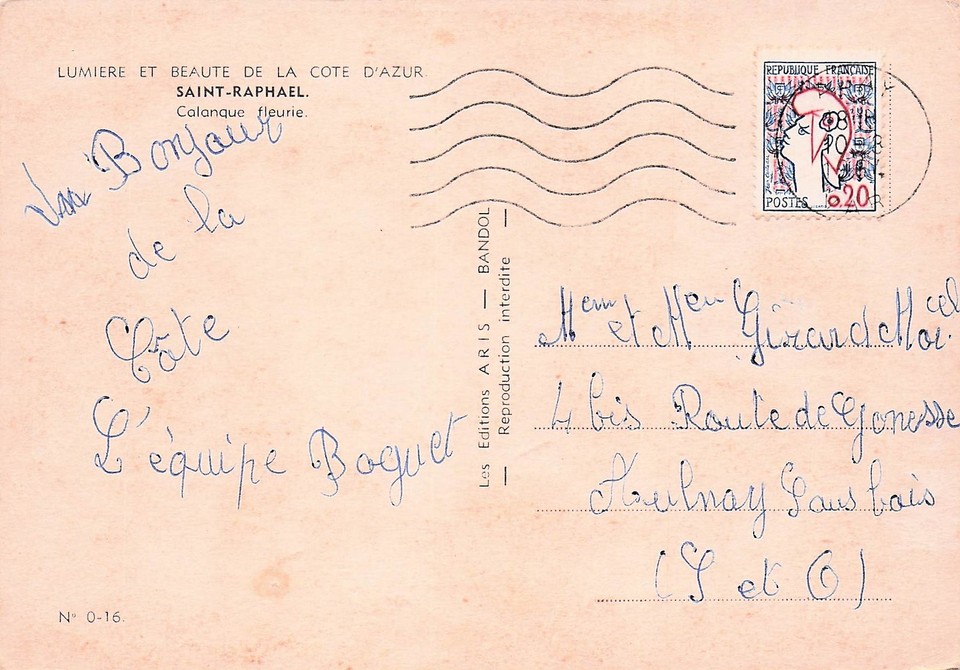 LUMIERE ET BEAUTE DE LA COTE D'AZUR
SAINT-RAPHAEL.
Calanque fleurie.
Un Bonjour
de la
Côte
L'équipe Boguet
N° 0-16.
Les Editions ARIS — BANDOL
— Reproduction interdite —
REPUBLIQUE FRANÇAISE
POSTES 0,20
Mam et Meu Girard Mar.cel
4 bis Route de Gonesse
Aulnay Sous bois
(S et O)